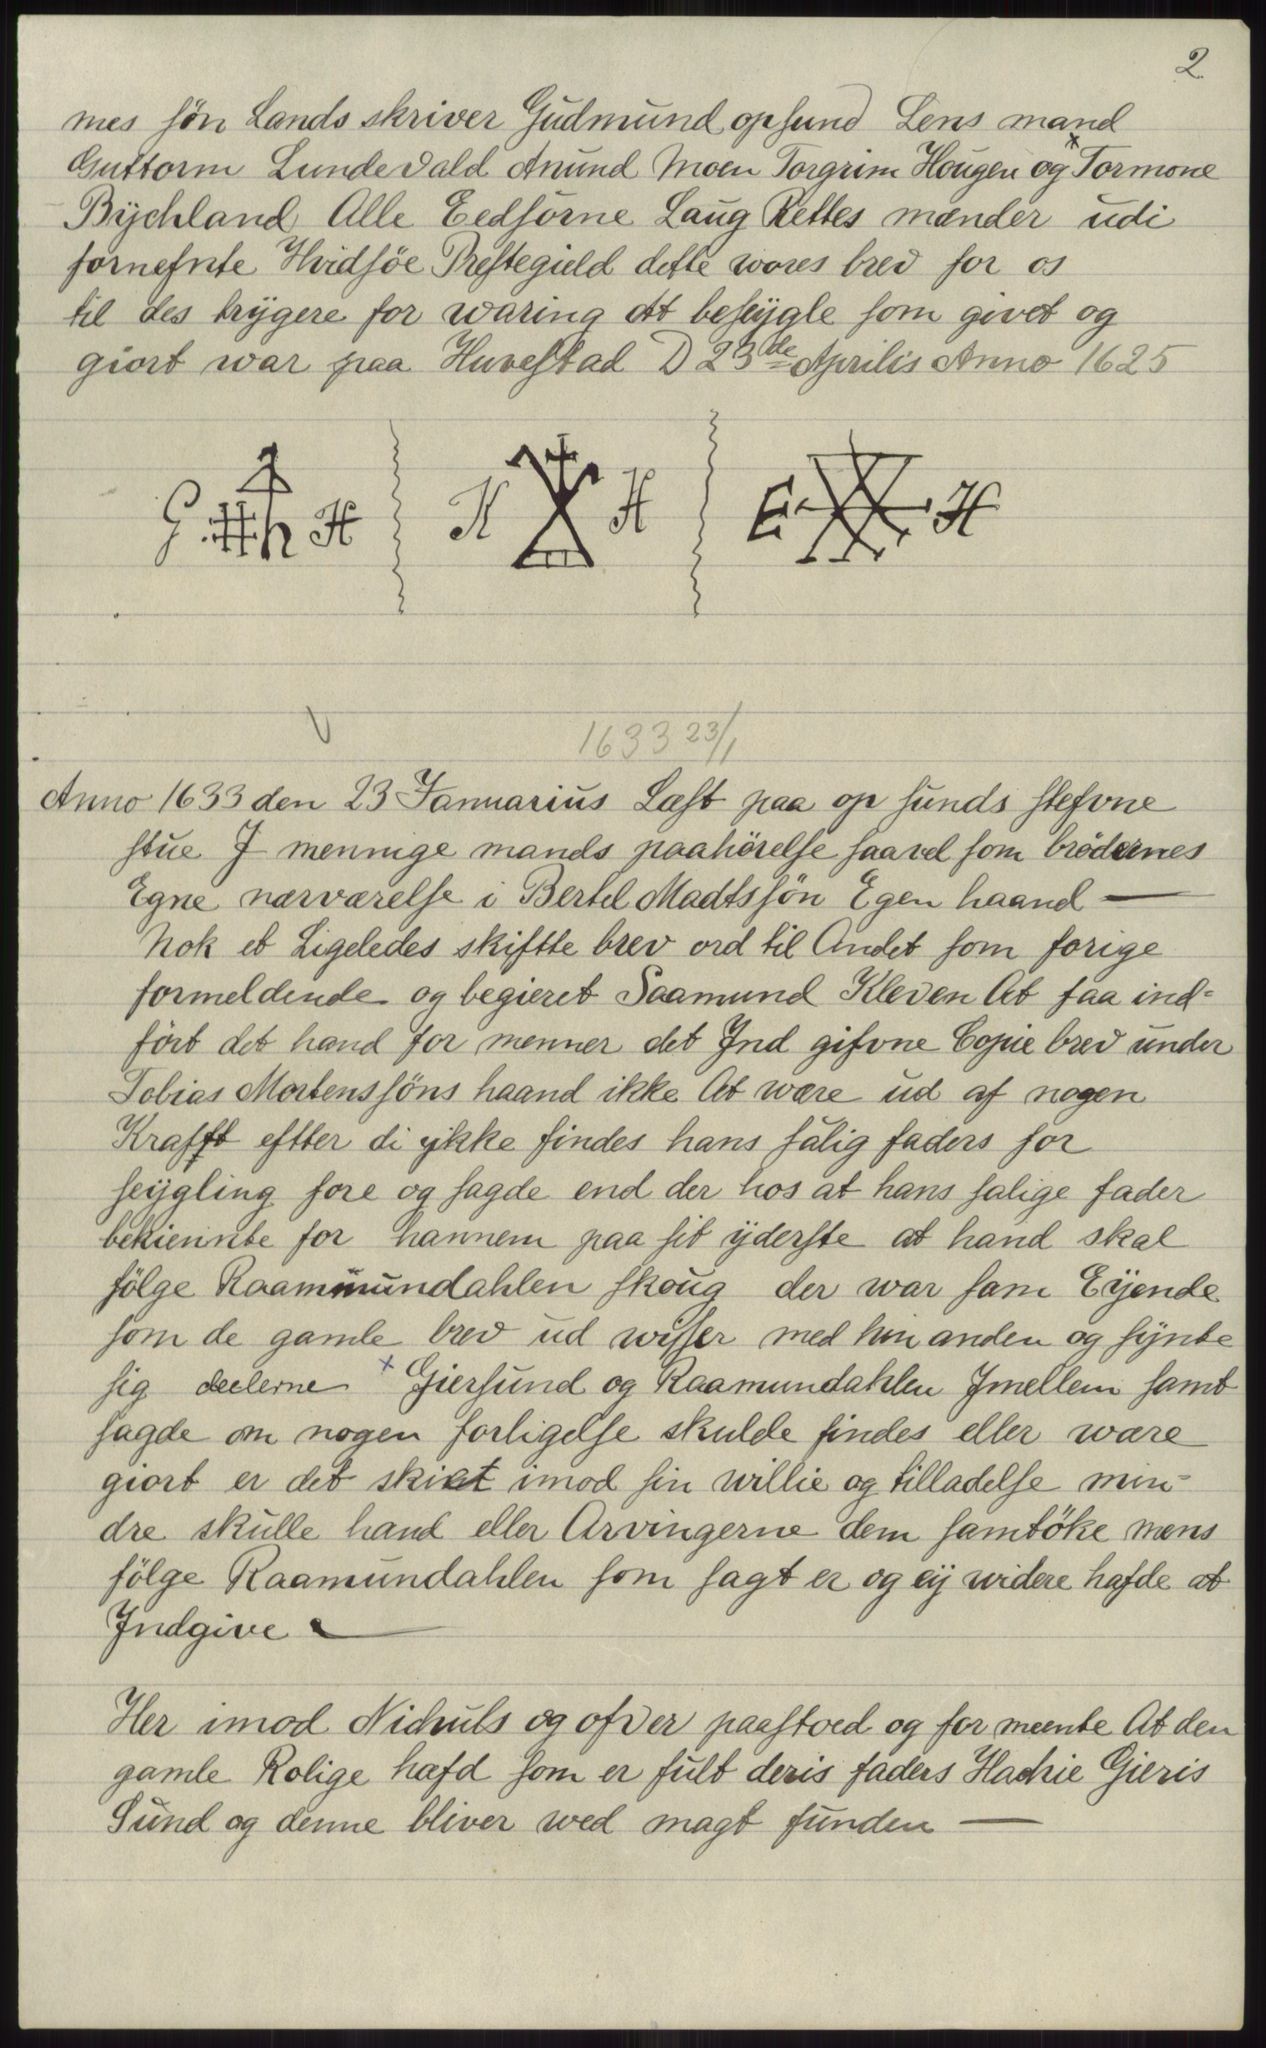 2
mes søn Lands skriver Gudmund opsund Lens mand
Guttorm Lundevald Anund Moen Torgrim Hougen og x Tormone
Bÿchland Alle Eedsorne Laug Rettes mænder udi
fornefnte Hvidsøe Prestegield dette wores brev for os
til des trÿgere for waring At beseÿgle som givet og
giort war paa Huvestad D 23de Aprilis Anno 1625
G H K H E H
1633 23/1
Anno 1633 den 23 Januarius Læst paa op sunds stefvne
stue J mennige mands paahörelse saavel som brödernes
Egne nærværelse i Bertel Madtssön Egen haand —
Nok et Ligeledes skiftte brev ord til Andet som forige
formeldende og begieret Saamund Kleven At faa ind=
fört det hand for menner det Jnd gifvne Copie brev under
Tobias Mortenssöns haand ikke At være ud af nogen
Krafft eftter di ÿkke findes hans salig faders for
seÿgling fore og sagde end der hos at hans salige fader
bekiennte for hannem paa sit ÿderste at hand skal
fölge Raammundahlen skoug der war sam Eÿende
som de gamle brev ud wisser med hin anden og sÿnte
sig deelerne x Giersund og Raamundahlen Jmellem samt
sagde om nogen forligelse skulde findes eller være
giort er det skiet imod sin willie og tilladelse min=
dre skulle hand eller Arvingerne dem samtöke mens
fölge Raamundahlen som sagt er og eÿ widere hafde at
Jndgive —
Her imod Nichuls og ofver paastoed og for meente At den
gamle Rolige hæfd som er fult deris faders Hachie Gieris
Sund og denne bliver wed magt funden —